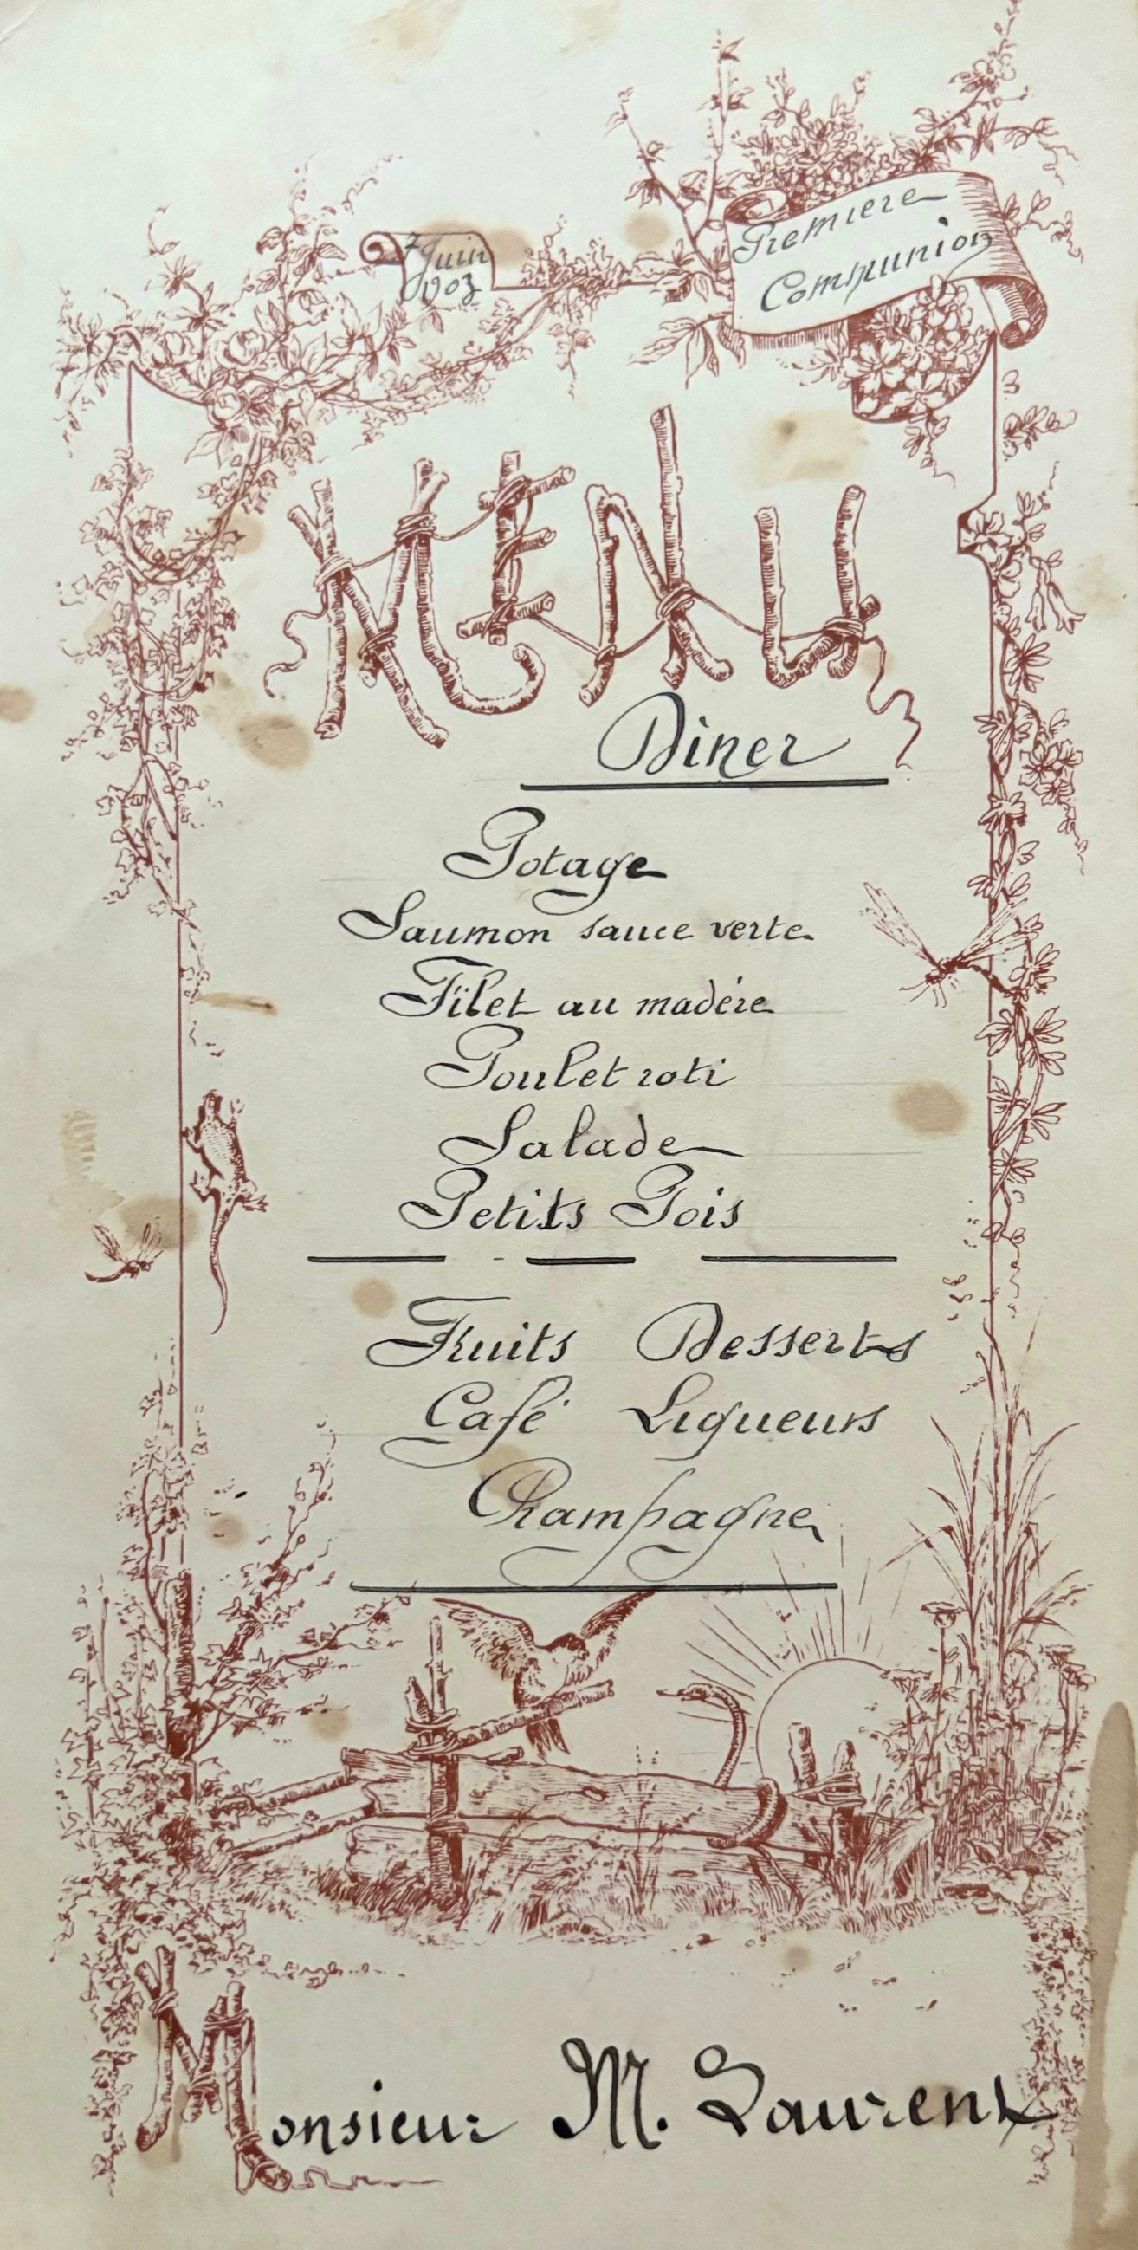 7 Juin
1903
Premiere
Communion
MENU
Dîner
Potage
Saumon sauce verte
Filet au madère
Poulet roti
Salade
Petits Pois
Fruits Desserts
Café Liqueurs
Champagne
Monsieur M. Laurent